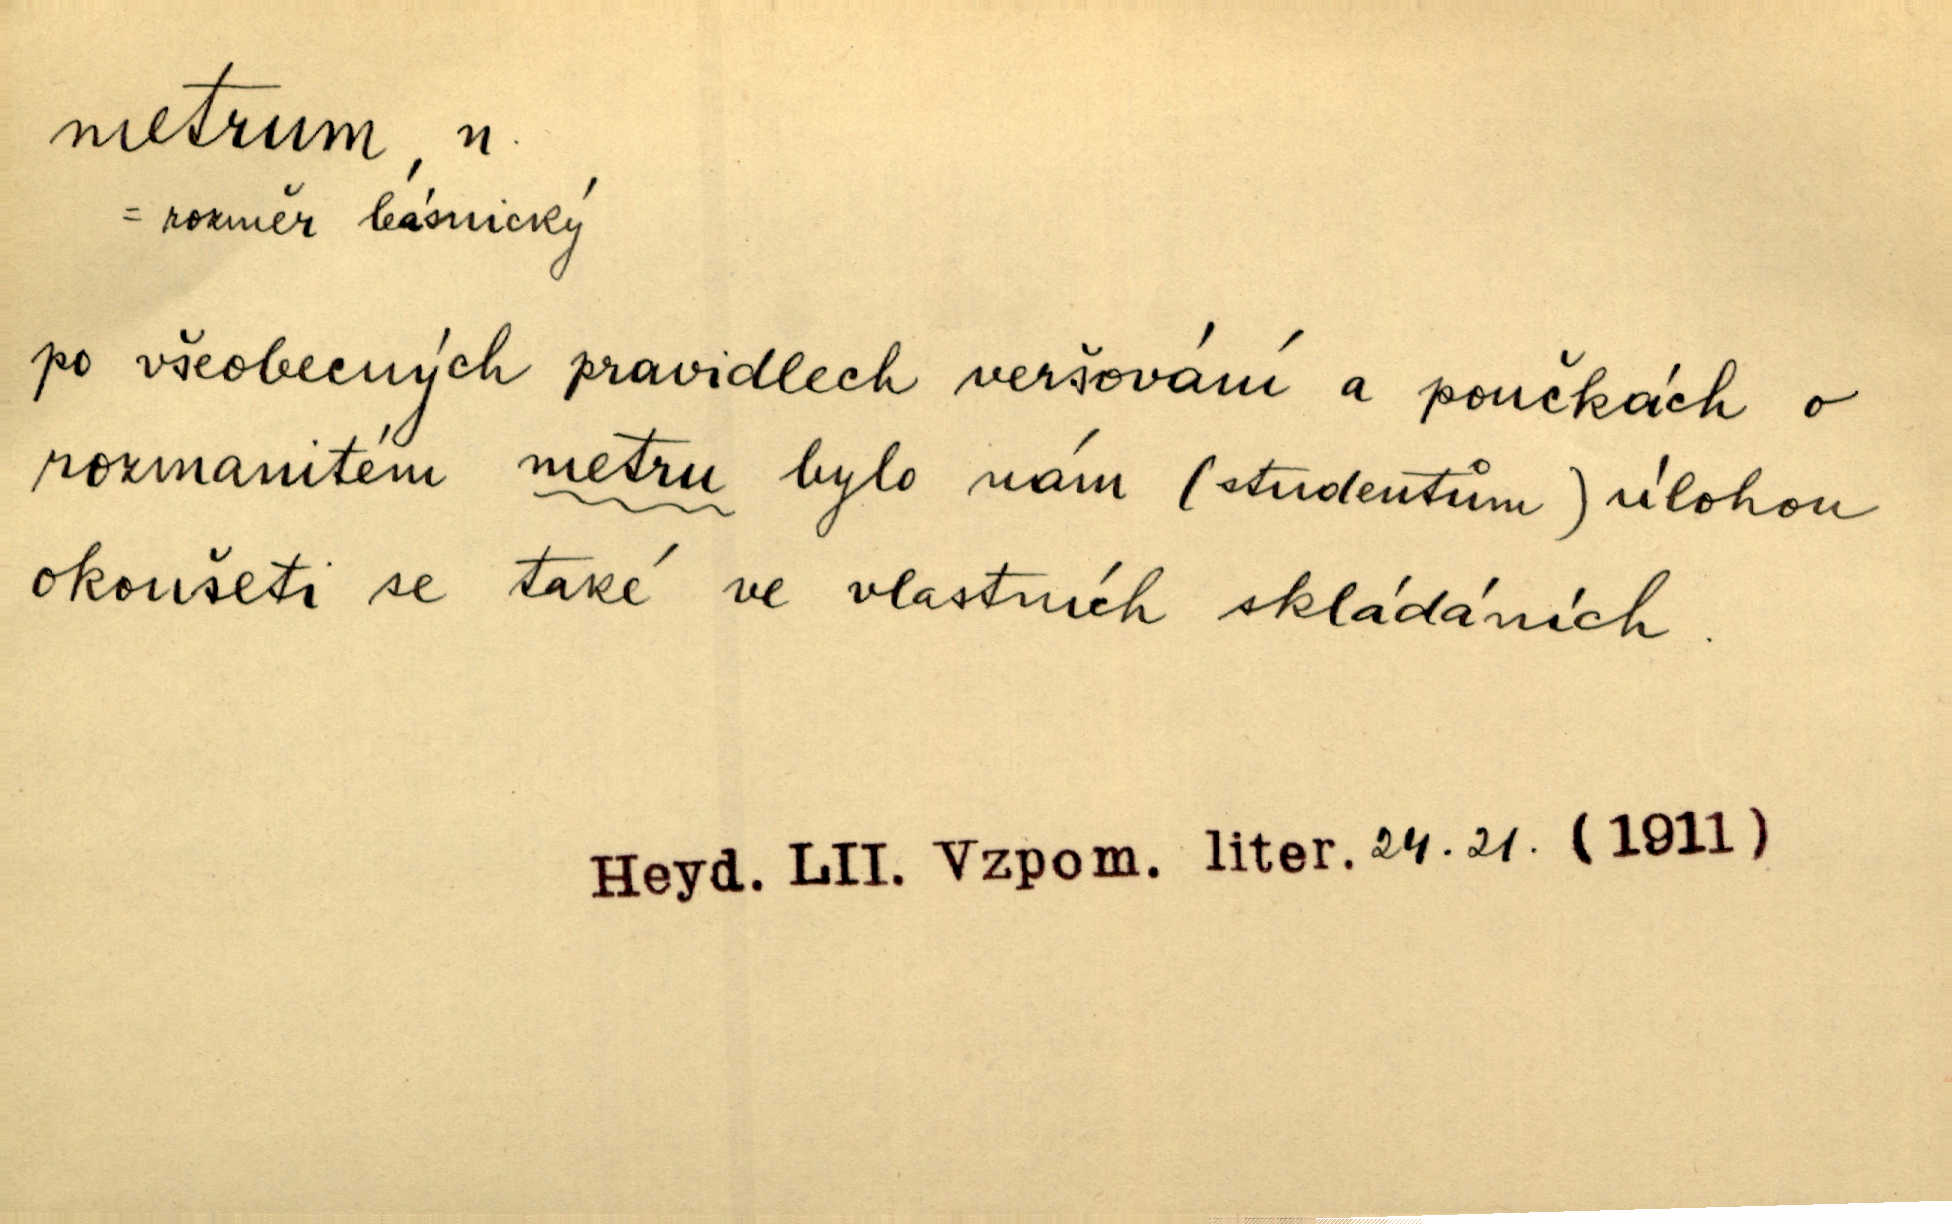 metrum, n.
= rozměr básnický
po všeobecných pravidlech veršování a poučkách o
rozmanitém metru bylo nám (studentům) úlohou
okoušeti se také ve vlastních skládáních.
Heyd. LII. Vzpom. liter. 24. 21. (1911)